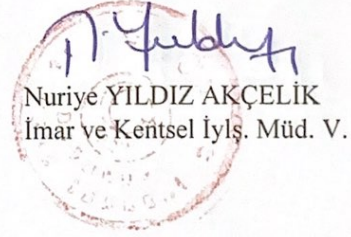 Nuriye YILDIZ AKÇELİK
İmar ve Kentsel İylş. Müd. V.